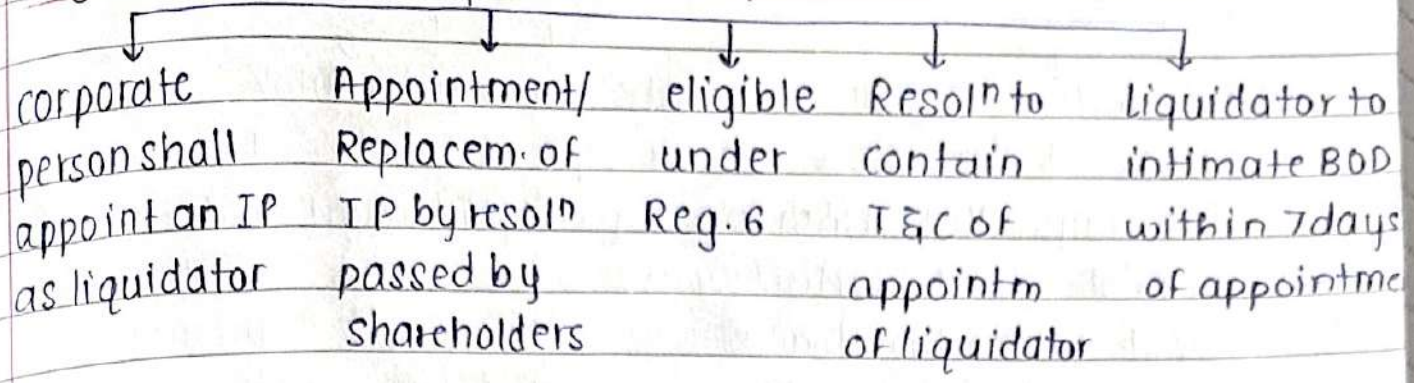 corporate
person shall
appoint an IP
as liquidator
Appointment/
Replacem. of
IP by resoln
passed by
shareholders
eligible
under
Reg. 6
Resoln to
contain
T & C of
appointm
of liquidator
Liquidator to
intimate BOD
within 7 days
of appointme